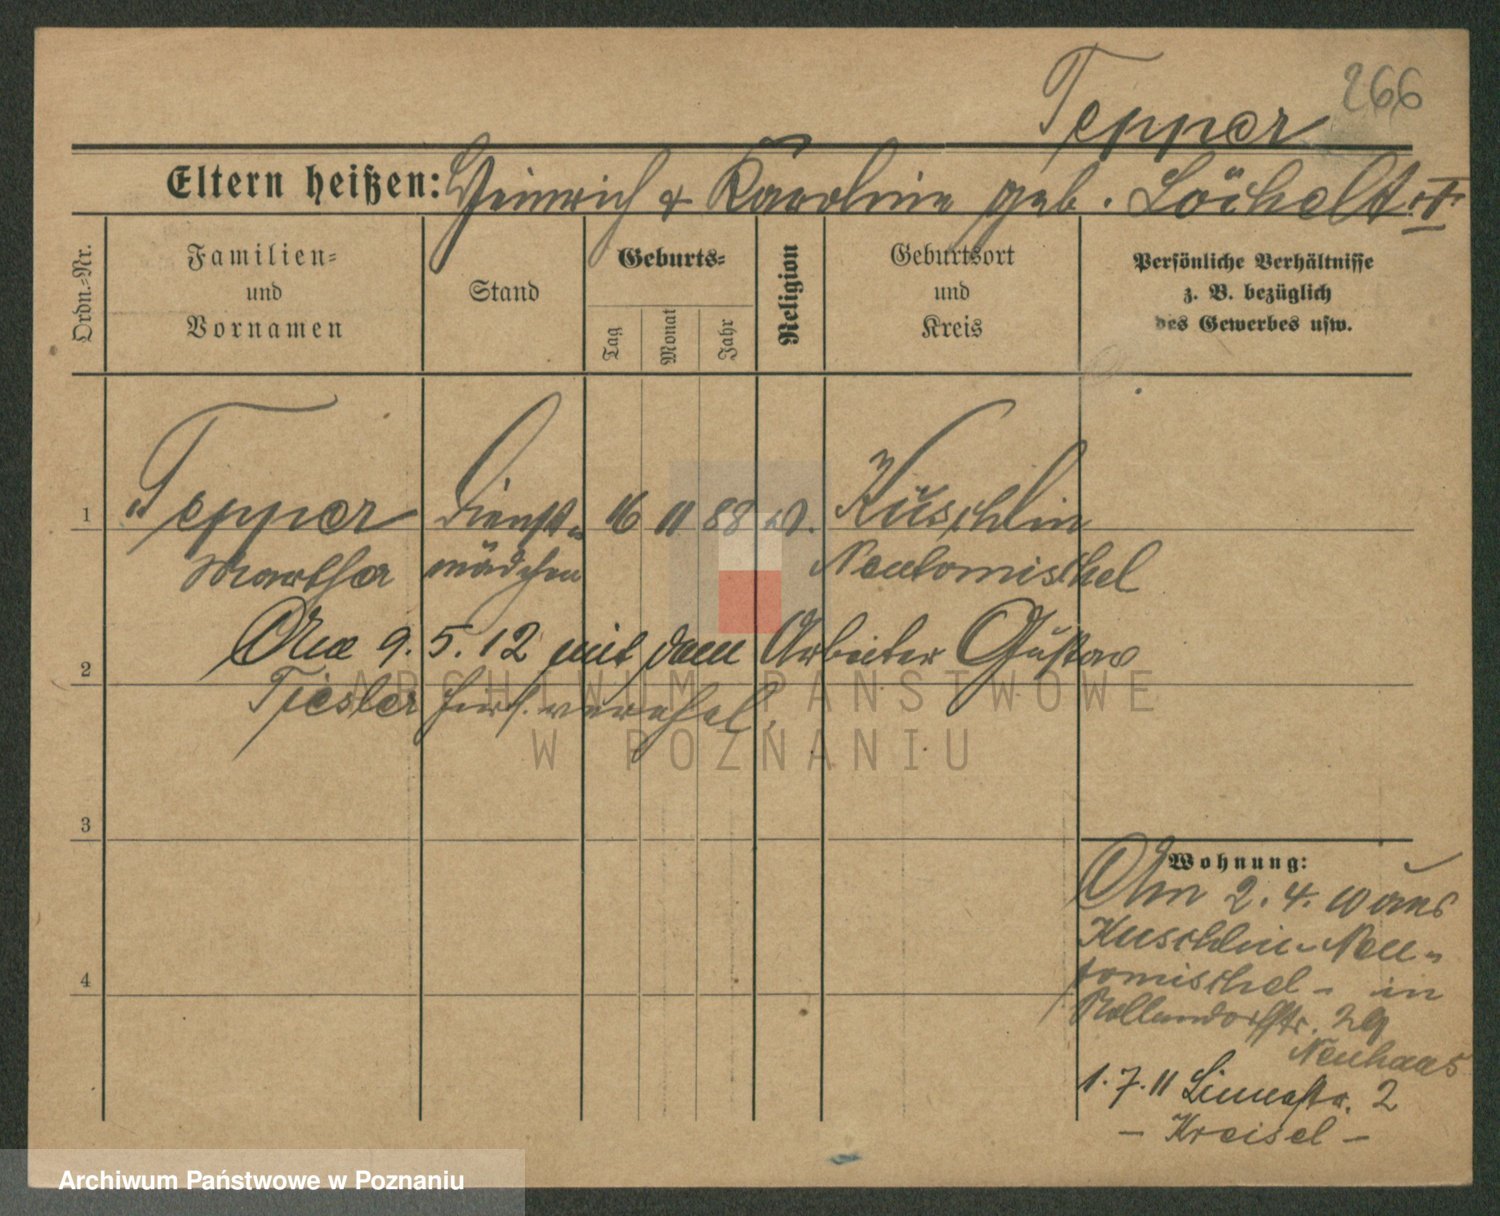 266
Tepper
Eltern heißen: Heinrich & Karoline geb. Löchelt
Ordn.-Nr.
Familien-
und
Vornamen
Stand
Geburts-
Tag
Monat
Jahr
Religion
Geburtsort
und
Kreis
Persönliche Verhältnisse
z. B. bezüglich
des Gewerbes usw.
1 Tepper Dienst- 16 11 88 Kuschlin
Martha mädchen Neutomischel
Am 9. 5. 12 mit dem Arbeiter Gustav
2
Tiesler hier verehel.
3
4
Wohnung:
Am 2. 4. 10 aus
Kuschlin - Neu-
tomischel - in
Nollendorfstr. 29
Neuhaus
1. 7. 11 2
- Kreisel -
ARCHIWUM PAŃSTWOWE
W POZNANIU
Archiwum Państwowe w Poznaniu